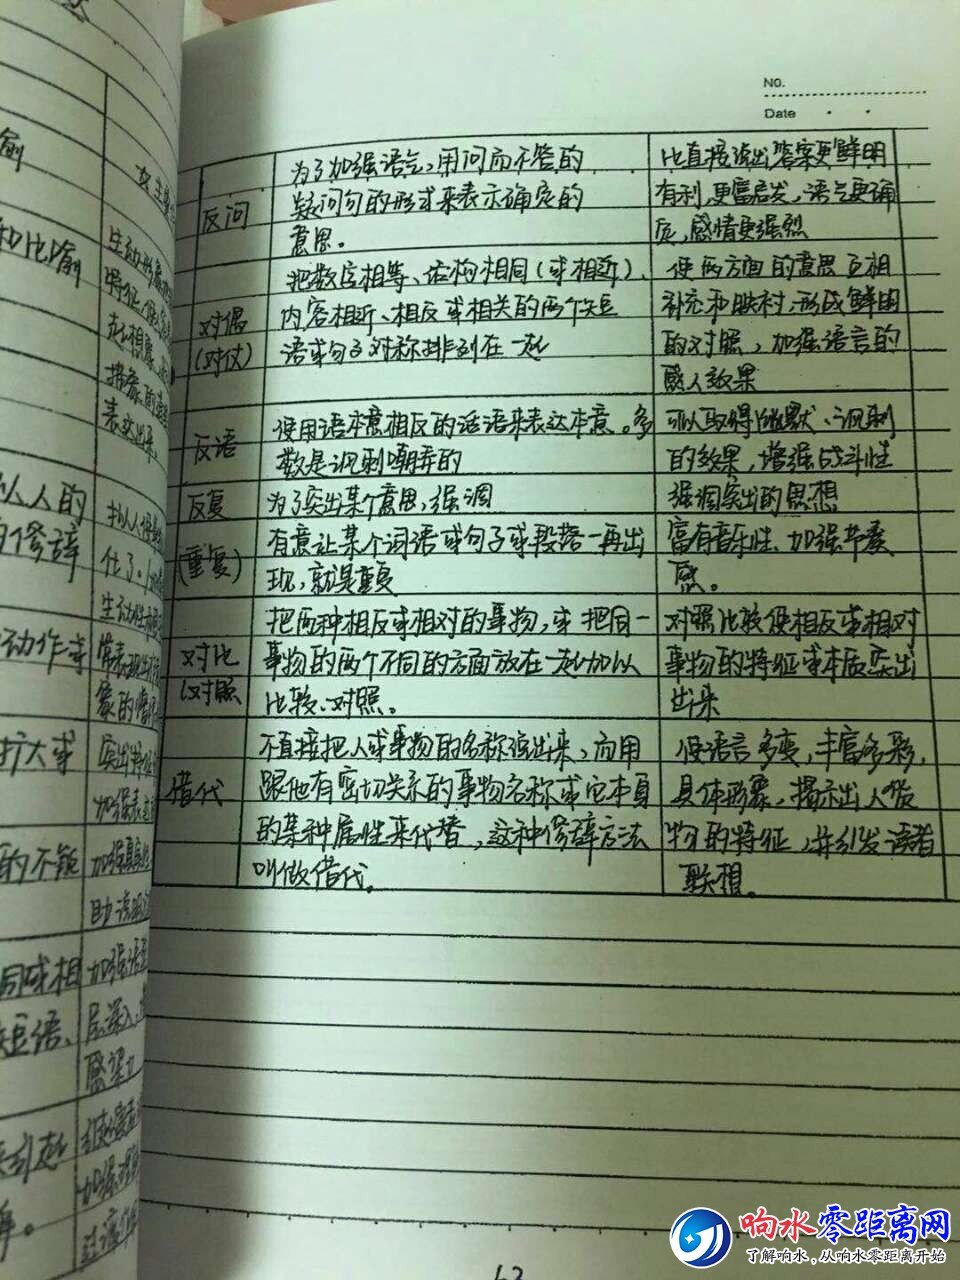 NO.
Date
反问
为了加强语气,用问而不答的
疑问句的形式来表示确定的
意思。
比直接说出答案更鲜明
有利,更富启发,语气更确
定,感情更强烈
对偶
(对仗)
把数字相等、结构相同(或相近)、
内容相近、相反或相关的两个短
语或句子对称排列在一起
使两方面的意思互相
补充和映衬,形成鲜明
的对照,加强语言的
感人效果
反语
使用语本意相反的话语来表达本意。多
数是讽刺嘲弄的
可以取得幽默、讽刺
的效果,增强战斗性
反复
(重复)
为了突出某个意思,强调
有意让某个词语或句子或段落一再出
现,就是重复
强调突出的思想
富有音乐性、加强节奏
感。
对比
(对照
把两种相反或相对的事物,或把同一
事物的两个不同的方面放在一起加以
比较、对照。
对照比较使相反或相对
事物的特征或本质突出
出来
借代
不直接把人或事物的名称说出来,而用
跟他有密切关系的事物名称或它本身
的某种属性来代替,这种修辞方法
叫做借代。
使语言多变,丰富多彩,
具体形象,揭示出人或
物的特征,并引发读者
联想。
和比喻
生动形象
表达出来.
以人的
的修辞
动作等
扩大或
的不锐
同或相
短语、
加强语
层深入
感染力
63
响水零距离网
了解响水,从响水零距离开始